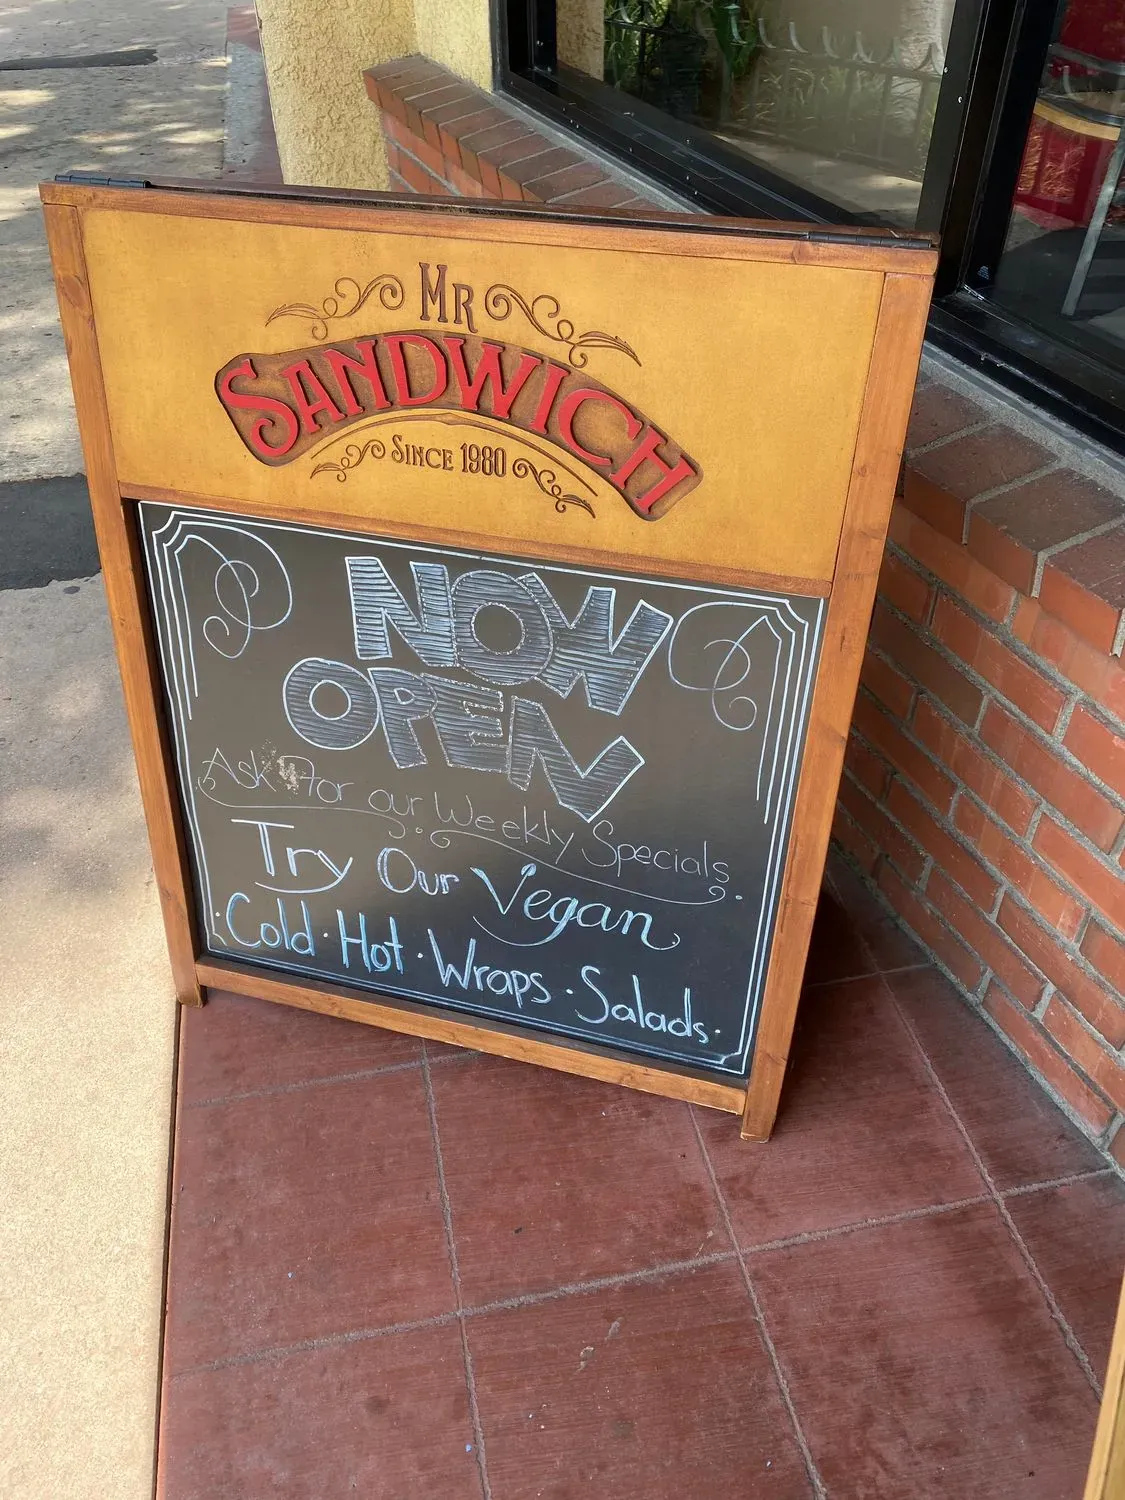 MR
SANDWICH
SINCE 1980
NOW
OPEN
Ask For our Weekly Specials
Try Our Vegan
Cold · Hot · Wraps · Salads ·